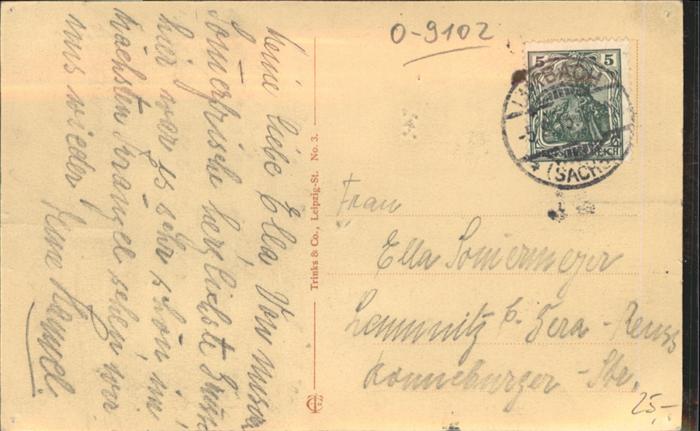 O-9102
meine liebe Ella Von unser
Sommerfrische herzlichste Grüsse
hier war es sehr schön im
nächsten
sehen wir
uns wieder Deine
Trinks & Co., Leipzig-St. No. 3.
5 5
LIMBACH
(SACHS
REICH
Frau
Ella Sommermeyer
Lemnnitz b. Gera-Reuss
Ronneburger-Str.
25,-